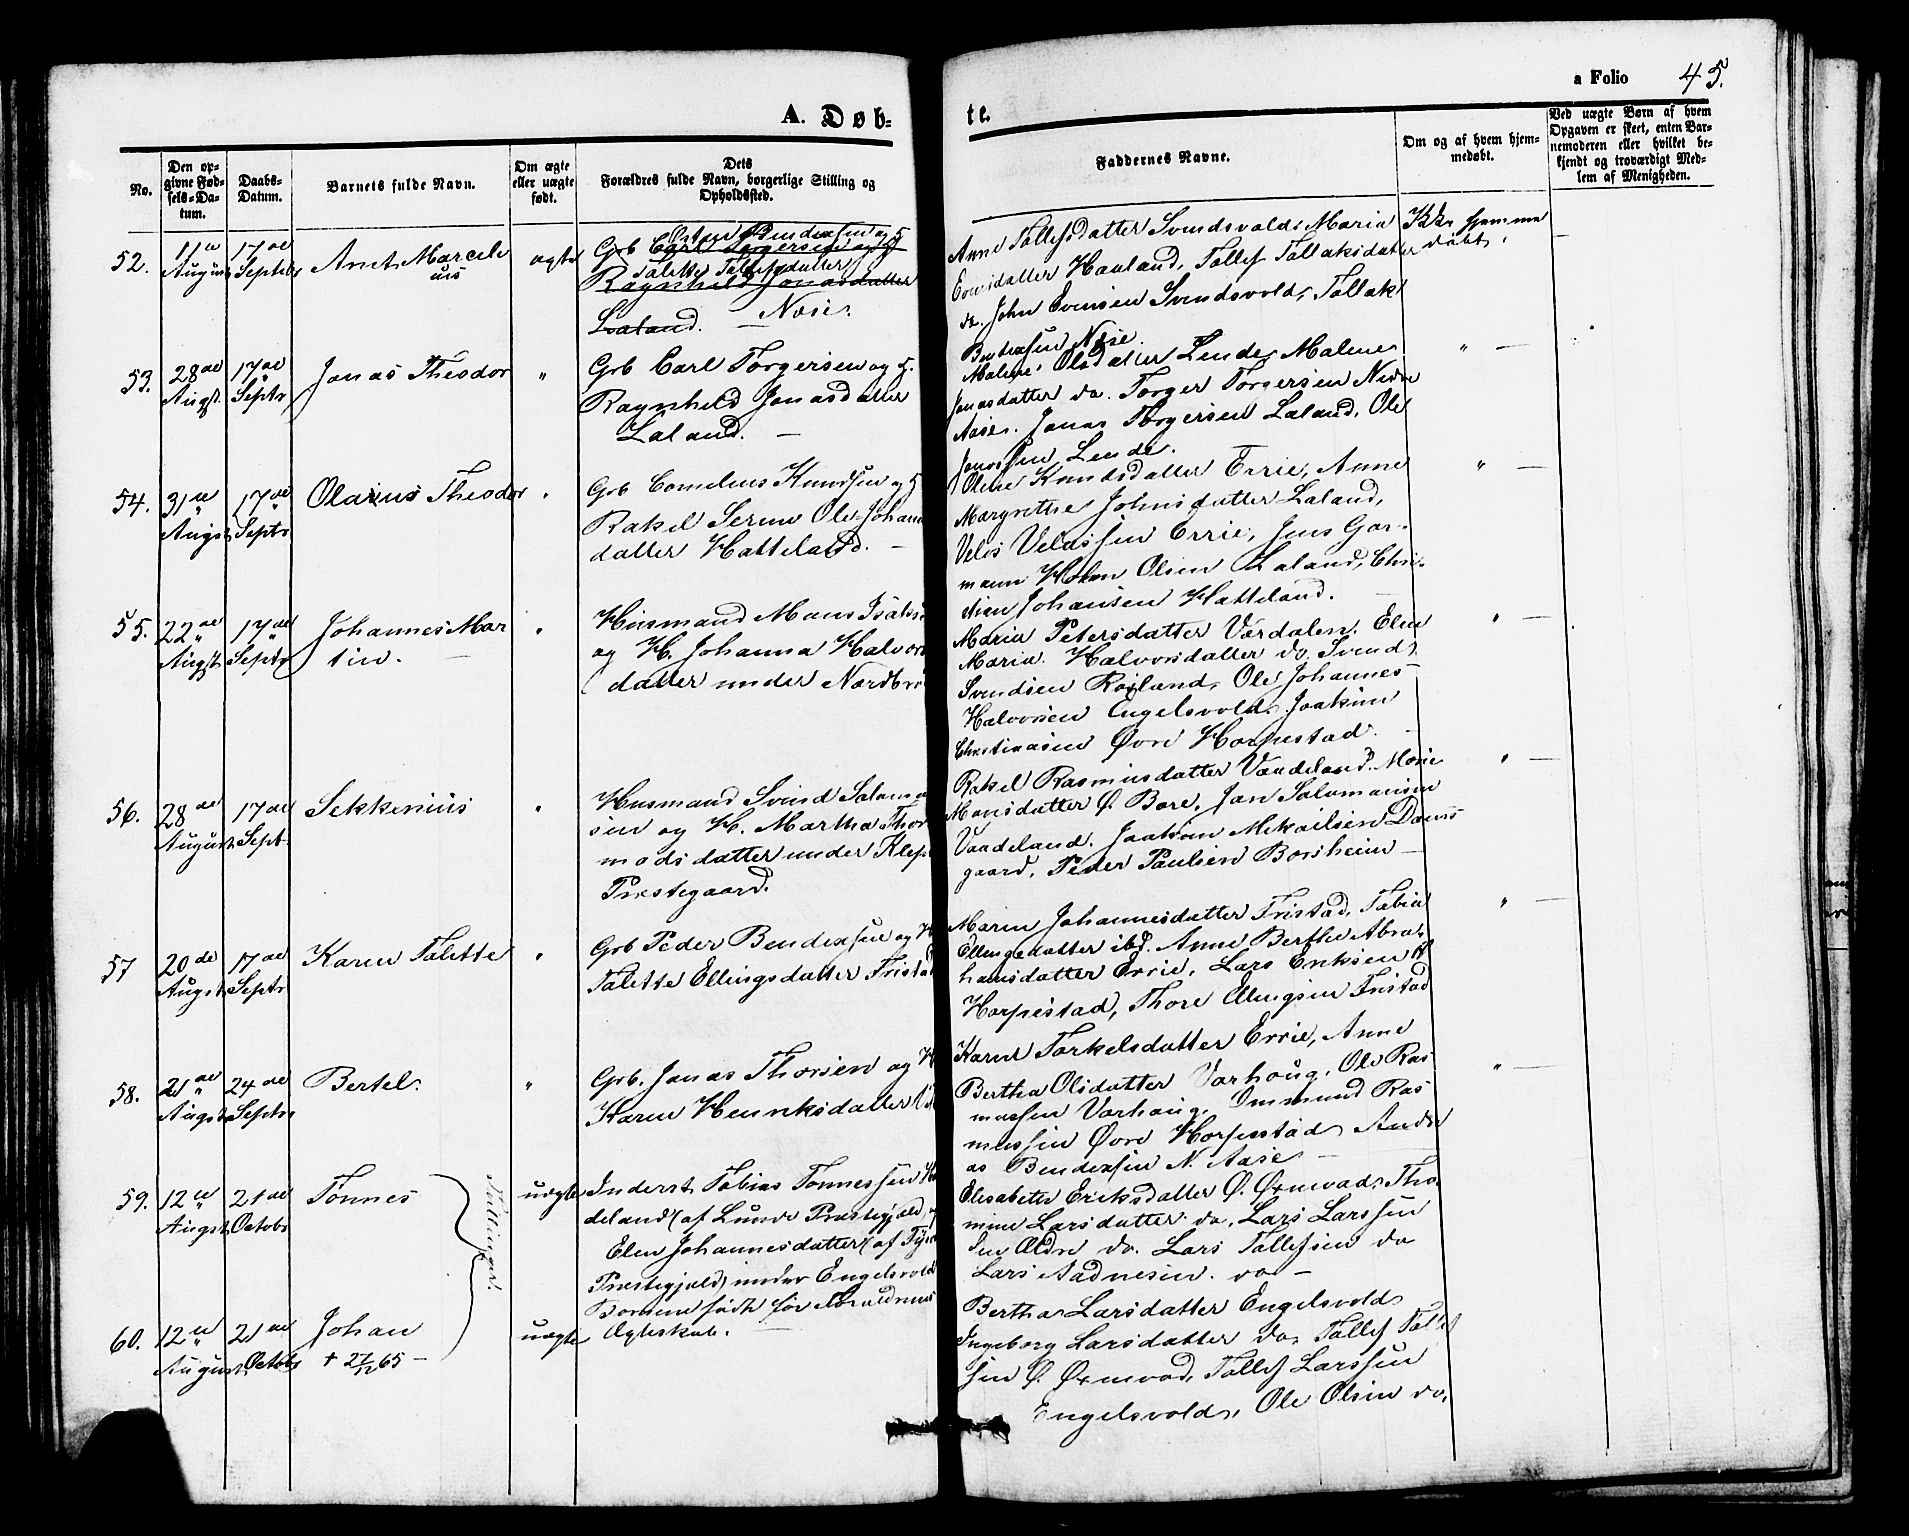 a Folio 45.
A. Døb-
te.
No.
Den op-
givne Fød-
sels-Da-
tum.
Daabs-
Datum.
Barnets fulde Navn.
Om ægte
eller uægte
født.
Dets
Forældres fulde Navn, borgerlige Stilling og
Opholdssted.
Faddernes Navne.
Om og af hvem hjem-
medøbt.
Ved uægte Børn af hvem
Opgaven er skeet, enten Bar-
nemoderen eller hvilket be-
kjendt og troværdigt Med-
lem af Menigheden.
52.
11te
August
17de
Septbr
Anet Marceli
us
ægte
Grb Carl Torgersen og H
Bendixsen og
Talette Tollefsdatter
Raynhild Jonasdatter
Laland. — Nose.
Anne Tollefsdatter Svendsvold, Maria
Hauland, Tollef Tollaksdatter
do. John Svensen Svendsvold, Tollak
Bendixsen Nose.
Ikke hjemme
døbt.
53.
28de
Augst.
17de
Septr
Jonas Theodor
"
Grb Carl Torgersen og H.
Raynhild Jonasdatter
Laland. —
Malene Olsdatter Lende, Malene
Jonasdatter do. Torger Torgersen Nedre
Aase. Jonas Torgersen Laland, Ole
Jonassen Lende.
" —
54.
31te
Augst
17de
Septr
Olaius Theodor
"
Grb Cornelius Knudsen og H
Rakel Serine Ole Johans
datter Hatteland. —
Oline Knudsdatter Errie, Anne
Margrethe Johnsdatter Laland,
Velos Velassen Errie, Jens Gar-
mann Holm Olsen Laland, Chri-
stian Johansen Hatteland.
" —
55.
22de
Augst
17de
Septr
Johannes Mar
tin. —
"
Husmand Mons Isaks
og H. Johanna Halvors
datter under Nordbr
Maria Petersdatter Værdalen. Elen
Maria. Halvorsdatter do. Svend
Svendsen Rosland, Ole Johannes
Halvorsen Engelsvold. Joakim
Christiansen Øvre Horpestad. —
" —
56.
28de
August
17de
Sept.
Sekkenius
"
Husmand Svend Salamon
sen og H. Martha Thor
modsdatter under Klep
Præstegaard.
Rakel Rasmusdatter Vaadeland. Marie
Monsdatter Ø. Bore, Jan Salamonsen
Vaadeland. Joakim Mekailsen
gaard, Peder Paulsen Borsheim —
" —
57
20de
Augst
17de
Septr
Karen Talette
"
Grb Peder Bendixsen og H
Talette Ellingsdatter Tristad
Maren Johannesdatter Tristad, Tabia
Ellingsdatter ibd. Anne Berthe Abra-
hamsdatter Errie, Lars Eriksen
Horpestad, Thore Ellingsen Tristad
" —
58.
21de
Augst
24de
Septr
Bertel.
"
Grb. Jonas Thorsen og H
Karen Henriksdatter
Karen Torkelsdatter Errie, Anne
Bertha Olsdatter Varhoug. Ole Ras
mussen Varhaug. Ommund Ras
mussen Øvre Horpestad, Andre
as Bendixsen N. Aase —
" —
59.
12te
Augst
21de
Octobr
Tønnes
Tvillinger.
uægte
Inderst Tobias Tønnessen
deland (af Lunde Præstegjeld)
Elen Johannesdatter (af
Præstegjeld) under Engelsvold
Børnene fødte før Forældrenes
Ægteskab. —
Elisabeth Eriksdatter Ø. Ørnevad, Tho-
mine Larsdatter do, Lars Larssen
den Ældre do. Lars Tollefsen do
Lars Aadnesen. do —
60.
12te
August
21de
Octobr
Johan
+ 27/12 65 —
uægte
Bertha Larsdatter Engelsvold
Ingeborg Larsdatter do, Tollef Tollef
sen Ø. Ørnevad, Tollef Larssen
Engelsvold, Ole Olsen do,